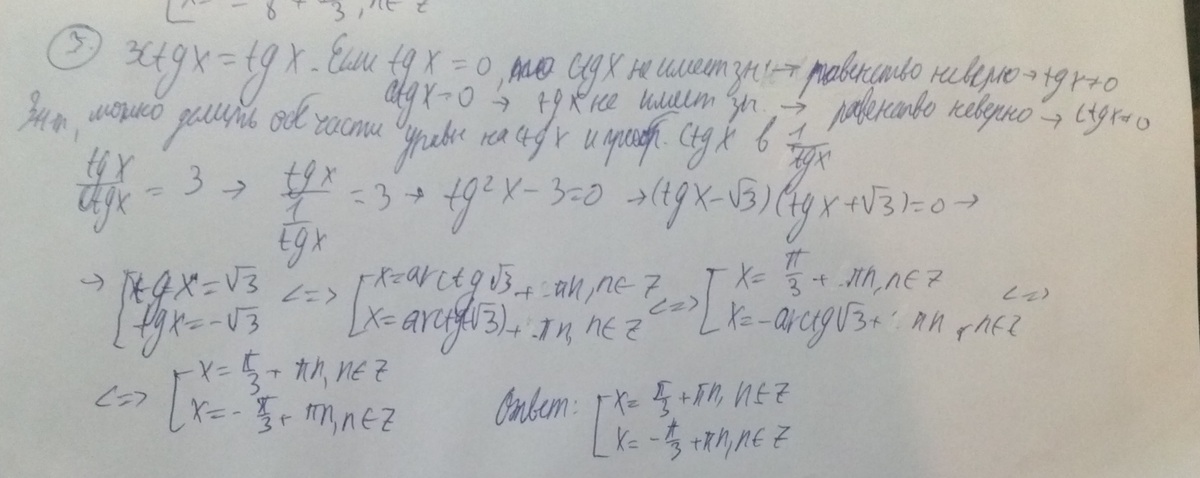 x= - π/8 + π/3, n∈Z
3. 3ctgx = tgx. Если tgx = 0, то ctgx не имеет зн. → равенство неверно → tgx≠0
ctgx=0 → tgx не имеет зн. → равенство неверно → ctgx≠0
Знач, можно делить обе части уравн на ctgx и преобр. ctgx в 1/tgx
tgx/ctgx = 3 → tgx/(1/tgx) = 3 → tg²x - 3=0 → (tgx-√3)(tgx+√3)=0 →
→ [tgx=√3 <=> [x=arctg√3 + πn, n∈Z <=> [x= π/3 + πn, n∈Z <=>
tgx=-√3 x=arctg(-√3) + πn, n∈Z x=-arctg√3 + πn, n∈Z
<=> [x= π/3 + πn, n∈Z Ответ: [x= π/3 +πn, n∈Z
x= - π/3 + πn, n∈Z x= - π/3 +πn, n∈Z